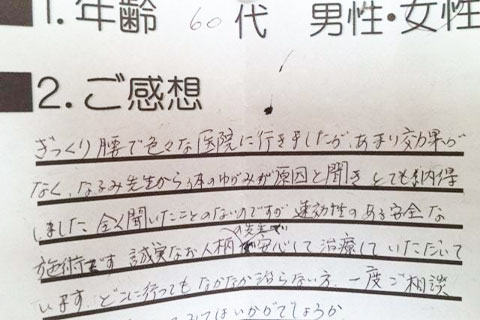 1. 年齢 60代 男性・女性
2. ご感想
ぎっくり腰で色々な医院に行きましたが、あまり効果が
なく、なるみ先生から体のゆがみが原因と聞き とても納得
しました 全く聞いたことのないのですが 速効性のある安全な
施術です 誠実なお人柄の先生で安心して治療していただいて
います。どこに行ってもなかなか治らない方、一度ご相談
みてはいかがでしょうか